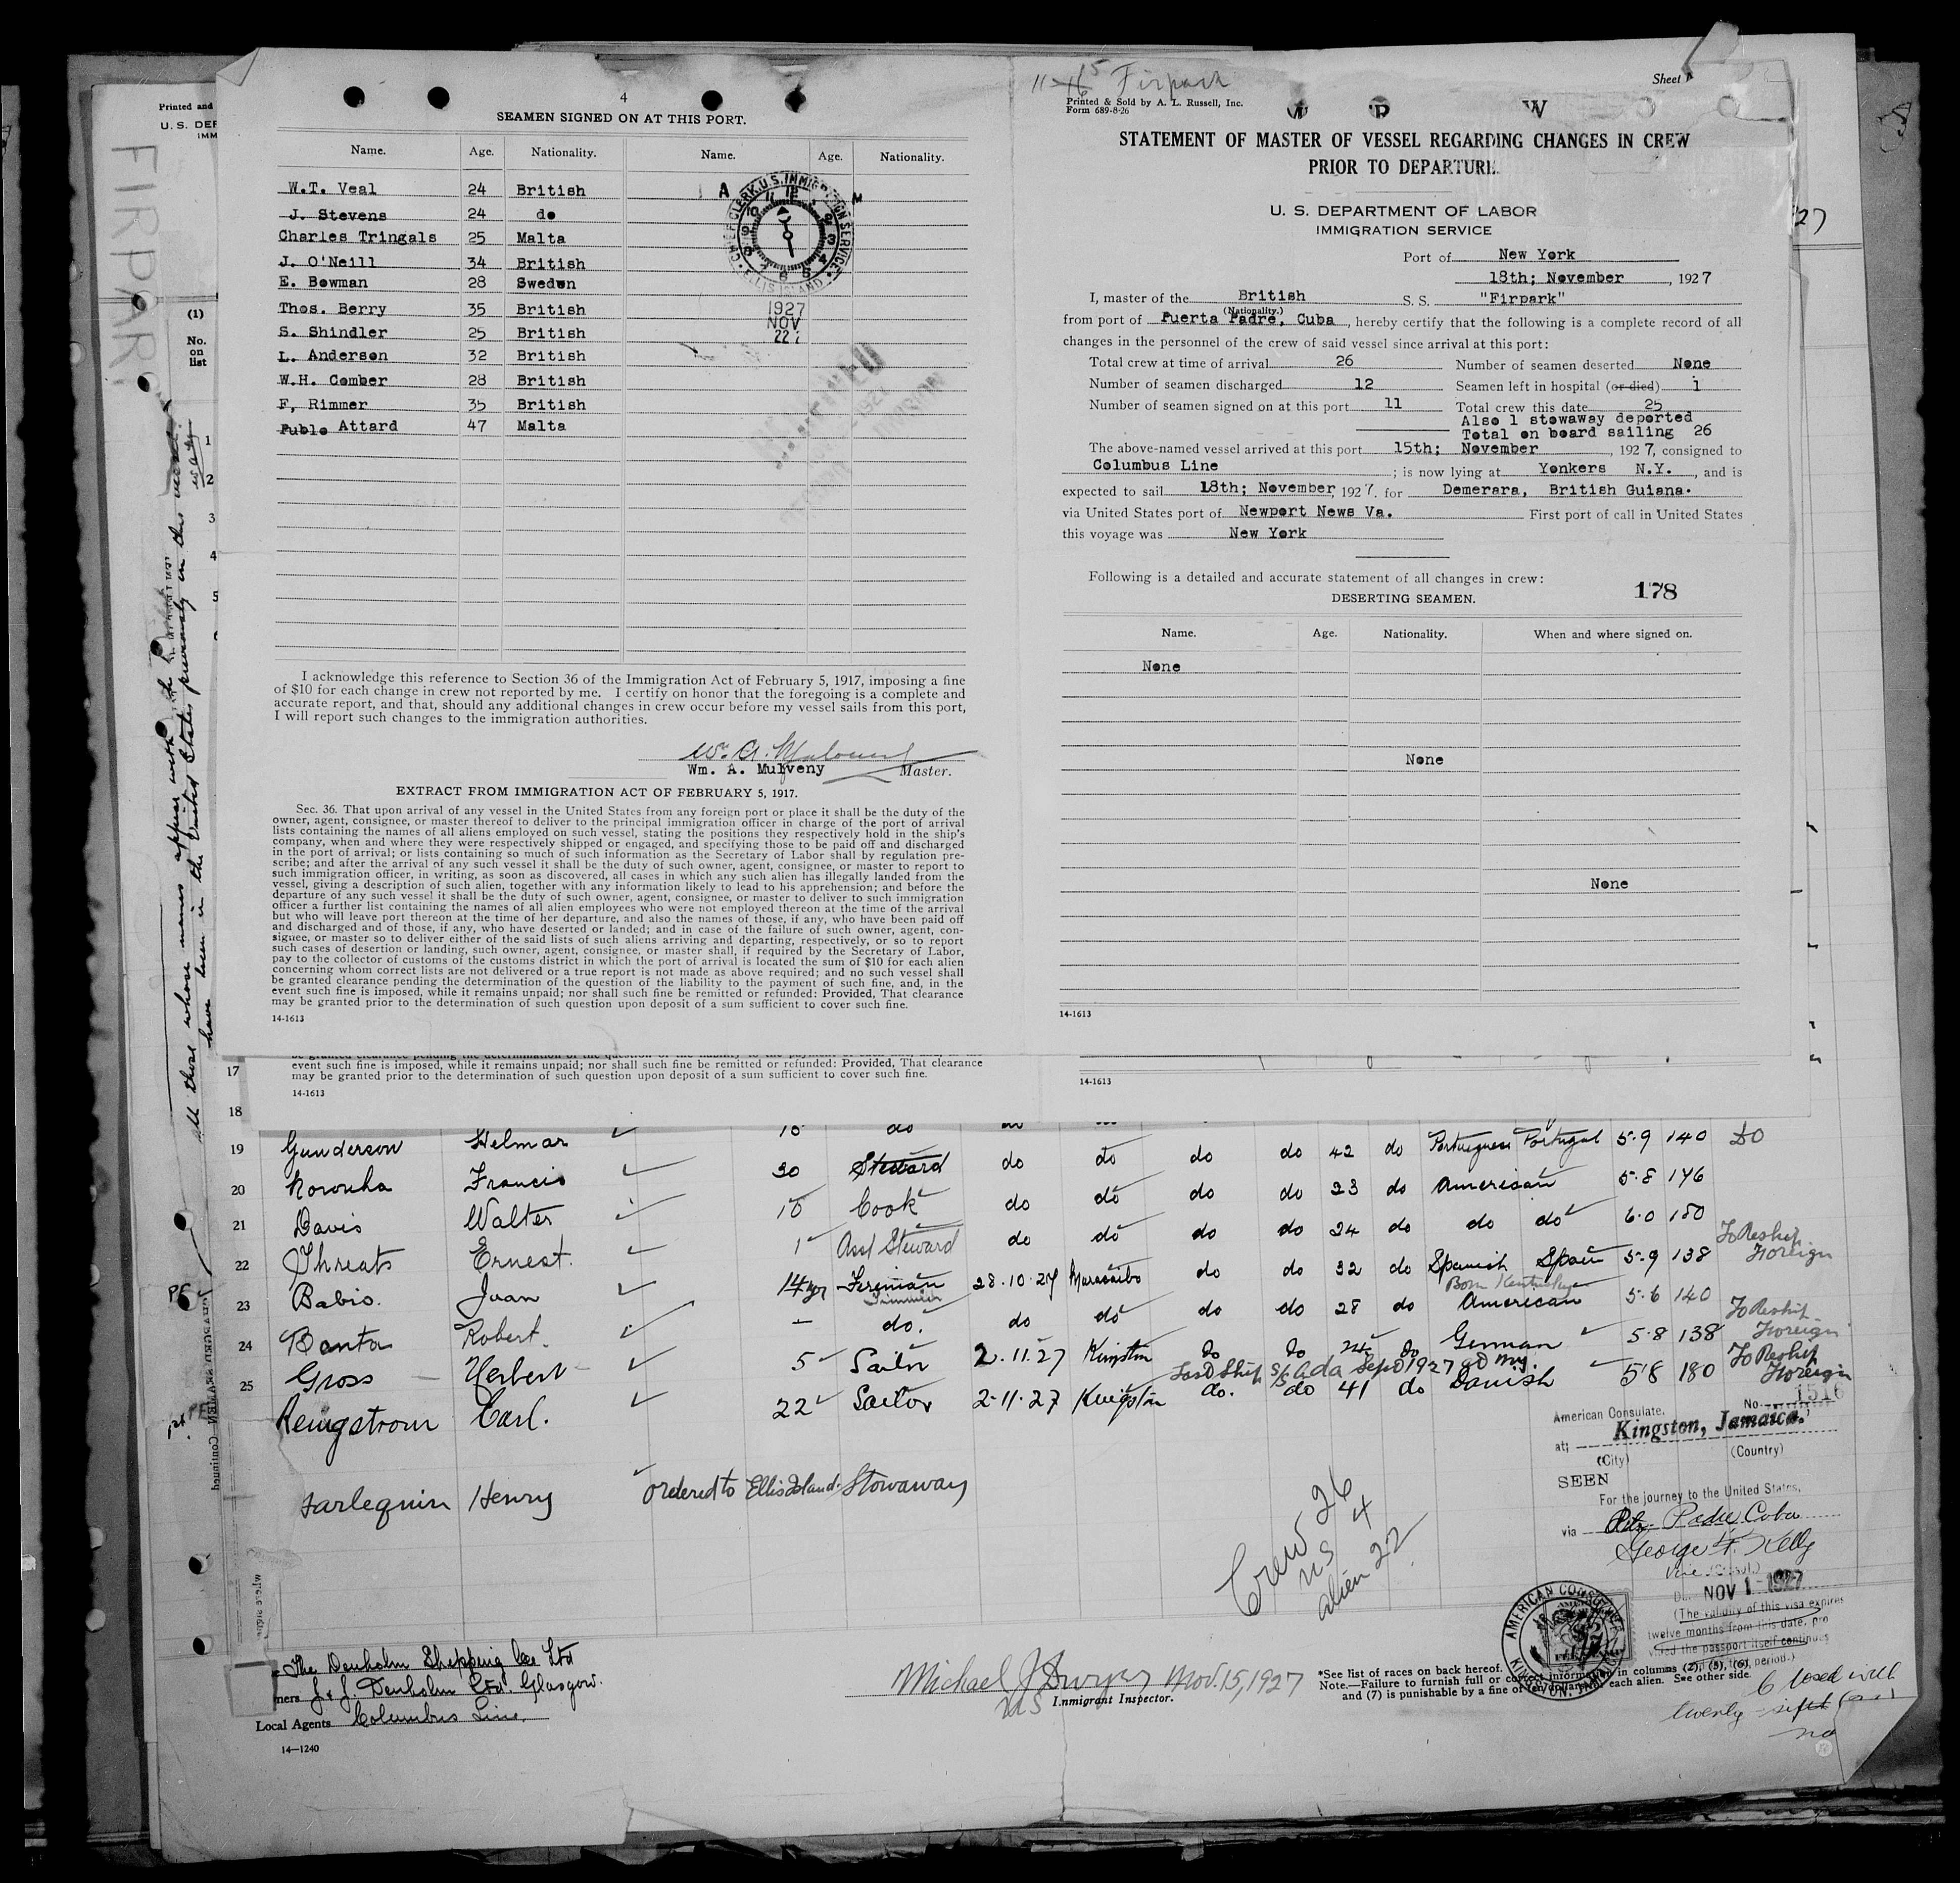 4
SEAMEN SIGNED ON AT THIS PORT.
Name. Age. Nationality. Name. Age. Nationality.
W.T. Veal 24 British
J. Stevens 24 do
Charles Tringals 25 Malta
J. O'Neill 34 British
E. Bowman 28 Sweden
Thos. Berry 35 British
S. Shindler 25 British
L. Anderson 32 British
W.H. Comber 28 British
F, Rimmer 35 British
Publo Attard 47 Malta
1927
NOV
22
I acknowledge this reference to Section 36 of the Immigration Act of February 5, 1917, imposing a fine
of $10 for each change in crew not reported by me. I certify on honor that the foregoing is a complete and
accurate report, and that, should any additional changes in crew occur before my vessel sails from this port,
I will report such changes to the immigration authorities.
Wm. A. Mulveny Master.
EXTRACT FROM IMMIGRATION ACT OF FEBRUARY 5, 1917.
Sec. 36. That upon arrival of any vessel in the United States from any foreign port or place it shall be the duty of the
owner, agent, consignee, or master thereof to deliver to the principal immigration officer in charge of the port of arrival
lists containing the names of all aliens employed on such vessel, stating the positions they respectively hold in the ship's
company, when and where they were respectively shipped or engaged, and specifying those to be paid off and discharged
in the port of arrival; or lists containing so much of such information as the Secretary of Labor shall by regulation pre-
scribe; and after the arrival of any such vessel it shall be the duty of such owner, agent, consignee, or master to report to
such immigration officer, in writing, as soon as discovered, all cases in which any such alien has illegally landed from the
vessel, giving a description of such alien, together with any information likely to lead to his apprehension; and before the
departure of any such vessel it shall be the duty of such owner, agent, consignee, or master to deliver to such immigration
officer a further list containing the names of all alien employees who were not employed thereon at the time of the arrival
but who will leave port thereon at the time of her departure, and also the names of those, if any, who have been paid off
and discharged and of those, if any, who have deserted or landed; and in case of the failure of such owner, agent, con-
signee, or master so to deliver either of the said lists of such aliens arriving and departing, respectively, or so to report
such cases of desertion or landing, such owner, agent, consignee, or master shall, if required by the Secretary of Labor,
pay to the collector of customs of the customs district in which the port of arrival is located the sum of $10 for each alien
concerning whom correct lists are not delivered or a true report is not made as above required; and no such vessel shall
be granted clearance pending the determination of the question of the liability to the payment of such fine, and, in the
event such fine is imposed, while it remains unpaid; nor shall such fine be remitted or refunded: Provided, That clearance
may be granted prior to the determination of such question upon deposit of a sum sufficient to cover such fine.
14-1613
Firpark
Sheet 1
Printed & Sold by A. L. Russell, Inc.
Form 689-8-26
STATEMENT OF MASTER OF VESSEL REGARDING CHANGES IN CREW
PRIOR TO DEPARTURE.
U. S. DEPARTMENT OF LABOR
IMMIGRATION SERVICE
Port of New York
18th; November, 1927
I, master of the British S. S. "Firpark"
(Nationality.)
from port of Puerta Padre, Cuba, hereby certify that the following is a complete record of all
changes in the personnel of the crew of said vessel since arrival at this port:
Total crew at time of arrival 26 Number of seamen deserted None
Number of seamen discharged 12 Seamen left in hospital (or died) 1
Number of seamen signed on at this port 11 Total crew this date 25
Also 1 stowaway deported
Total on board sailing 26
The above-named vessel arrived at this port 15th; November, 1927, consigned to
Columbus Line; is now lying at Yonkers N.Y., and is
expected to sail 18th; November 1927. for Demerara, British Guiana.
via United States port of Newport News Va. First port of call in United States
this voyage was New York
Following is a detailed and accurate statement of all changes in crew:
DESERTING SEAMEN. 178
Name. Age. Nationality. When and where signed on.
None
None
None
14-1613
Printed and
U. S. DEP
IMM
FIRPARK
(1)
No.
on
list
1
2
3
4
5
all those whose names appear with
have been in the United States previously
event such fine is imposed, while it remains unpaid; nor shall such fine be remitted or refunded: Provided, That clearance
may be granted prior to the determination of such question upon deposit of a sum sufficient to cover such fine.
14-1613
14-1613
17
18
19 Gunderson Helmar do 42 do Portuguese Portugal 5.9 140 DO
20 Noronha Francis 30 Steward do do do do 23 do American 5.8 146
21 Davis Walter 10 Cook do do do do 24 do do do 6.0 180
22 Threats Ernest. 1 Asst Steward do do do do 32 do Spanish Spain 5.9 138 To Reship Foreign
Born Kentucky
23 Babio. Juan 14 yr Fireman 28.10.27 Maracaibo do do 28 do American 5.6 140
24 Banta Robert. – do. do do do do 24 do German 5.8 138 To Reship Foreign
Last Ship S/S Ada Sept 1927 at NY.
25 Gross Herbert 5 Sailor 2.11.27 Kingston do. do 41 do Danish 5.8 180 To Reship Foreign
Rengstrom Carl. 22 Sailor 2-11-27 Kingston
Harlequin Henry ordered to Ellis Island. Stowaway
Crew 26
US 4
alien 22
No. 1516
American Consulate.
at; Kingston, Jamaica.
(City) (Country)
SEEN
For the journey to the United States,
via Pto. Padre Cuba
George F. Kelly
Vice (Consul.)
NOV 1 - 1927
(The validity of this visa expires
twelve months from this date, pro-
vided the passport itself continues
AMERICAN CONSULATE
KINGSTON, JAMAICA
The Denholm Shipping Co Ltd
J. & J. Denholm Ltd. Glasgow.
Local Agents Columbus Line.
14—1240
Michael J Dwyer Nov. 15, 1927
US Immigrant Inspector.
*See list of races on back hereof.
Note.—Failure to furnish full or correct information in columns (2), (5), (6),
and (7) is punishable by a fine of ten dollars for each alien. See other side.